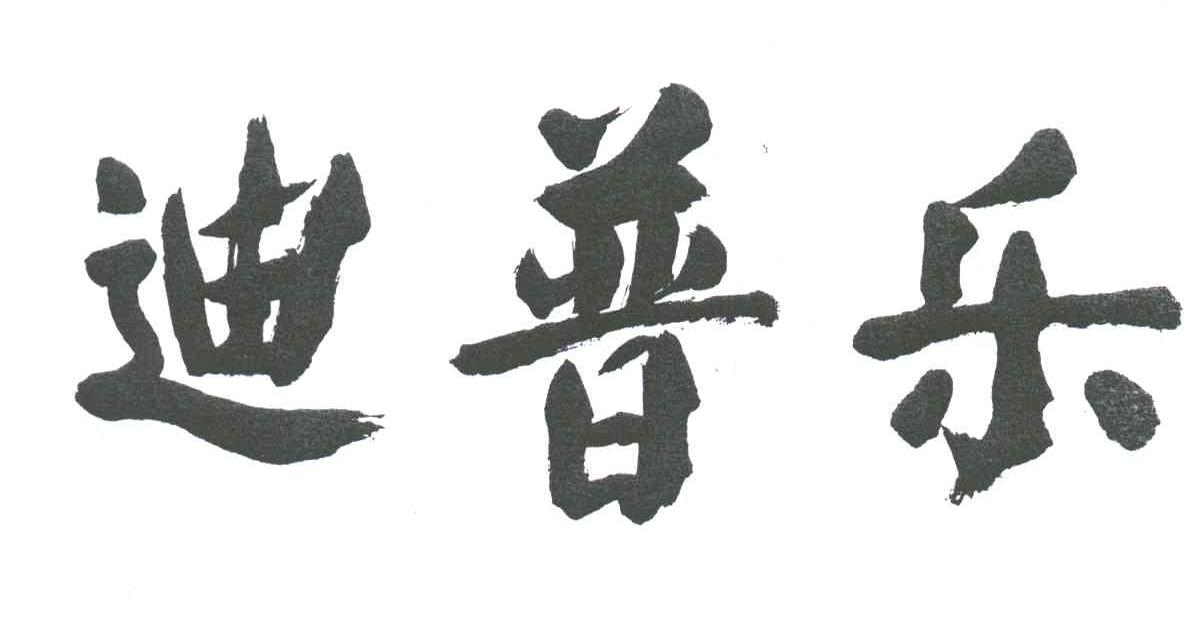 迪普乐